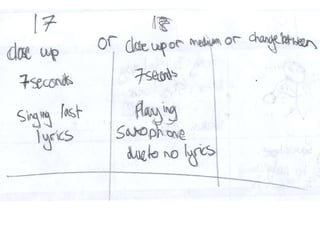 17 18
close up or close up or medium or change between
7 seconds 7 seconds
Singing last Playing
lyrics Saxophone
due to no lyrics